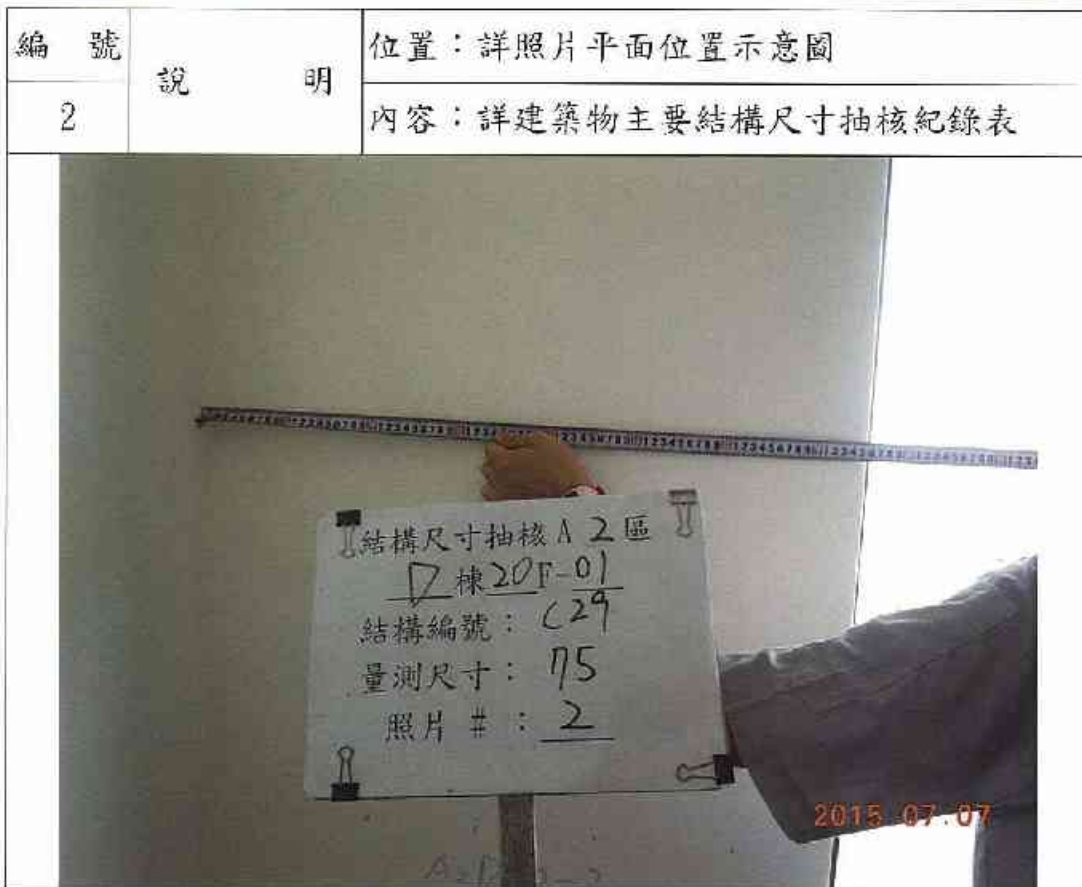 編號
說明
位置：詳照片平面位置示意圖
2
內容：詳建築物主要結構尺寸抽核紀錄表
結構尺寸抽核A 2區
D棟20F-01
結構編號：C29
量測尺寸：75
照片 #：2
2015 07.07